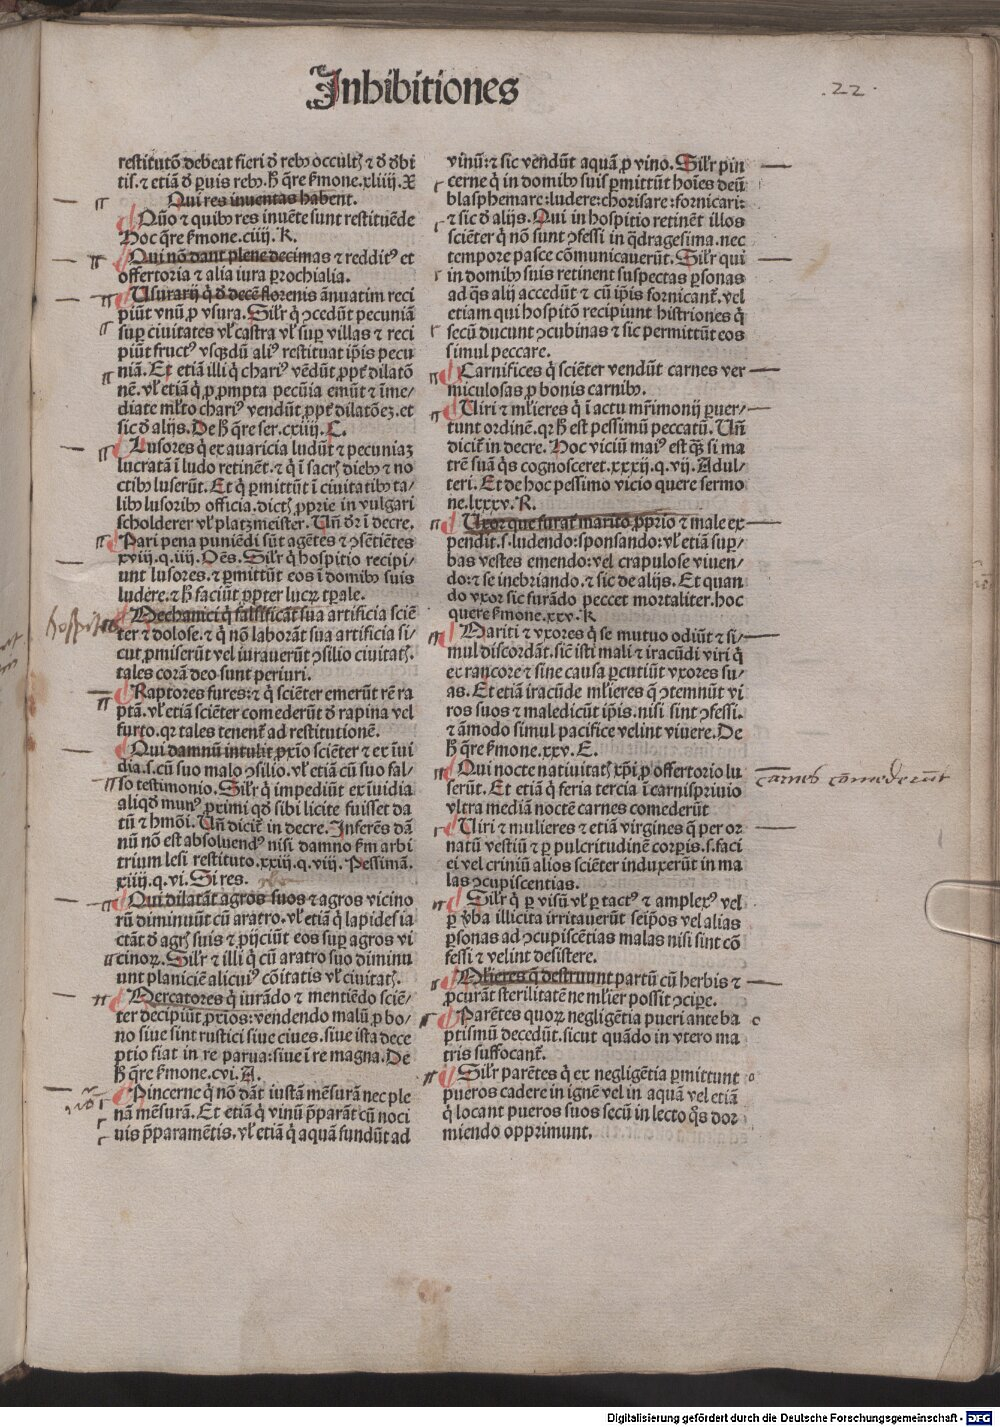 Inhibitiones
.22.
restitutō debeat fieri đ rebꝰ occultꝭ ⁊ đ đbi
tis. ⁊ etiā đ ꝑuis rebꝰ. h̄ q̄re ẜmone. xliiij. X
Qui res inuentas habent.
Qn̄o ⁊ quibꝰ res inuēte sunt restituēde
Hoc q̄re ẜmone. ciij. K.
Qui nō dant plene decimas ⁊ redditꝰ et
offertoria ⁊ alia iura ꝑrochialia.
Usurarij q̇ đ decē florenis ānuatim reci
piūt vnū ꝓ vsura. Silꝉr q̇ ↄcedūt pecuniā
suꝑ ciuitates vꝉ castra vꝉ suꝑ villas ⁊ reci
piūt fructꝰ vsq̄dū aliꝰ restituat ip̄is pecu
niā. Et etiā illi q̇ chariꝰ vēdūt ꝓpt̄ dilatō
nē. vꝉ etiā q̇ ꝓ ꝓmpta pecūia emūt ⁊ īme⸗
diate mꝉto chariꝰ vendūt ꝓpt̄ dilatōeꝫ. et
sic đ alijs. De h̄ q̄re ser. cxiiij. C.
Lusores q̇ ex auaricia ludūt ⁊ pecuniaꝫ
lucratā ī ludo retinēt. ⁊ q̇ ī sacrꝭ diebꝰ ⁊ no
ctibꝰ luserūt. Et q̇ ꝑmittūt ī ciuitatibꝰ ta⸗
libꝰ lusoribꝰ officia. dictꝭ ꝓprie in vulgari
scholderer vꝉ platzmeister. Un̄ đr ī decre.
Pari pena puniēdi sūt agētes ⁊ ↄsētiētes
xviij. q. iij. Oēs. Silꝉr q̇ hospitio recipi⸗
unt lusores. ⁊ ꝑmittūt eos ī domibꝰ suis
ludere. ⁊ h̄ faciūt ꝓpter lucꝝ tꝑale.
hospites
Mechanici q̇ falsificāt sua artificia sciē
ter ⁊ dolose. ⁊ q̇ nō laborāt sua artificia si⸗
cut ꝓmiserūt vel iurauerūt ↄsilio ciuitatꝭ.
tales corā deo sunt periuri.
Raptores fures: ⁊ q̇ sciēter emerūt rē ra
ptā. vꝉ etiā sciēter comederūt đ rapina vel
furto. qꝛ tales tenent̄ ad restitutionē.
Qui damnū intulit ꝓxīo sciēter ⁊ ex īui
dia. s. cū suo malo ↄsilio. vꝉ etiā cū suo fal⸗
so testimonio. Silꝉr q̇ impediūt ex īuidia
aliqđ munꝰ ꝓximi qđ sibi licite fuisset da
tū ⁊ hmōi. Un̄ dicit̄ in decre. Inferēs dā
nū nō est absoluendꝰ nisi damno ẜm arbi
trium lesi restituto. xxiij. q. viij. Pessimā.
xiiij. q. vi. Si res.
Qui dilatāt agros suos ⁊ agros vicino
rū diminuūt cū aratro. vꝉ etiā q̇ lapides ia
ctāt đ agrꝭ suis ⁊ ꝓijciūt eos suꝑ agros vi
cinoꝝ. Silꝉr ⁊ illi q̇ cū aratro suo diminu
unt planiciē alicuiꝰ cōitatis vꝉ ciuitatꝭ.
Mercatores q̇ iurādo ⁊ mentiēdo sciē⸗
ter decipiūt ꝓxīos: vendendo malū ꝓ bo⸗
no siue sint rustici siue ciues. siue ista dece
ptio fiat in re parua: siue ī re magna. De
h̄ q̄re ẜmone. cvi. A.
Pincerne q̇ nō dāt iustā mēsurā nec ple
nā mēsurā. Et etiā q̇ vinū p̄parāt cū noci
uis p̄paramētis. vꝉ etiā q̇ aquā fundūt ad
vinū: ⁊ sic vendūt aquā ꝓ vino. Silꝉr pin
cerne q̇ in domibꝰ suis ꝑmittūt hoīes deū
blasphemare: ludere: chorisare: fornicari:
⁊ sic đ alijs. Qui in hospitio retinēt illos
sciēter q̇ nō sunt ↄfessi in q̈dragesima. nec
tempore pasce cōmunicauerūt. Silꝉr qui
in domibꝰ suis retinent suspectas ꝑsonas
ad q̄s alij accedūt ⁊ cū ip̄is fornicant̄. vel
etiam qui hospitō recipiunt histriones q̇
secū ducunt ↄcubinas ⁊ sic permittūt eos
simul peccare.
Carnifices q̇ sciēter vendūt carnes ver
miculosas ꝓ bonis carnibꝰ.
Uiri ⁊ mꝉieres q̇ ī actu mr̄imonij ꝑuer⸗
tunt ordinē. qꝛ h̄ est pessimū peccatū. Un̄
dicit̄ in decre. Hoc viciū maiꝰ est q̄ꝫ si ma
trē suā q̇s cognosceret. xxxij. q. vij. Adul⸗
teri. Et de hoc pessimo vicio quere sermo
ne. lxxxv. R.
Uxor que furat̄ marito ꝓprio ⁊ male ex
pendit. s. ludendo: sponsando: vꝉ etiā suꝑ⸗
bas vestes emendo: vel crapulose viuen⸗
do: ⁊ se inebriando. ⁊ sic de alijs. Et quan
do vxor sic furādo peccet mortaliter. hoc
quere ẜmone. xxv. K
Mariti ⁊ vxores q̇ se mutuo odiūt ⁊ si⸗
mul discordāt. sic̄ isti mali ⁊ iracūdi viri q̇
ex rancore ⁊ sine causa ꝑcutiūt vxores su⸗
as. Et etiā iracūde mꝉieres q̄ ↄtemnūt vi
ros suos ⁊ maledicūt ip̄is. nisi sint ↄfessi.
⁊ āmodo simul pacifice velint viuere. De
h̄ q̄re ẜmone. xxv. E.
Qui nocte natiuitatꝭ xp̄i ꝓ offertorio lu
serūt. Et etiā q̇ feria tercia ī carnispriuio
vltra mediā noctē carnes comederūt
carnes comederūt
Uiri ⁊ mulieres ⁊ etiā virgines q̄ per or
natū vestiū ⁊ ꝑ pulcritudinē corꝑis. s. faci
ei vel criniū alios sciēter induxerūt in ma
las ↄcupiscentias.
Silꝉr q̇ ꝑ visū vꝉ ꝑ tactꝰ ⁊ amplexꝰ vel
ꝑ v̄ba illicita irritauerūt seip̄os vel alias
ꝑsonas ad ↄcupiscētias malas nisi sint cō
fessi ⁊ velint desistere.
Mꝉieres q̄ destruunt partū cū herbis ⁊
ꝓcurāt sterilitatē ne mꝉier possit ↄcipe.
Parētes quoꝝ negligētia pueri ante ba
ptismū decedūt. sicut quādo in vtero ma
tris suffocant̄.
Silꝉr parētes q̇ ex negligētia ꝑmittunt
pueros cadere in ignē vel in aquā vel etiā
q̇ locant pueros suos secū in lecto q̇s dor
miendo opprimunt.
Digitalisierung gefördert durch die Deutsche Forschungsgemeinschaft - DFG